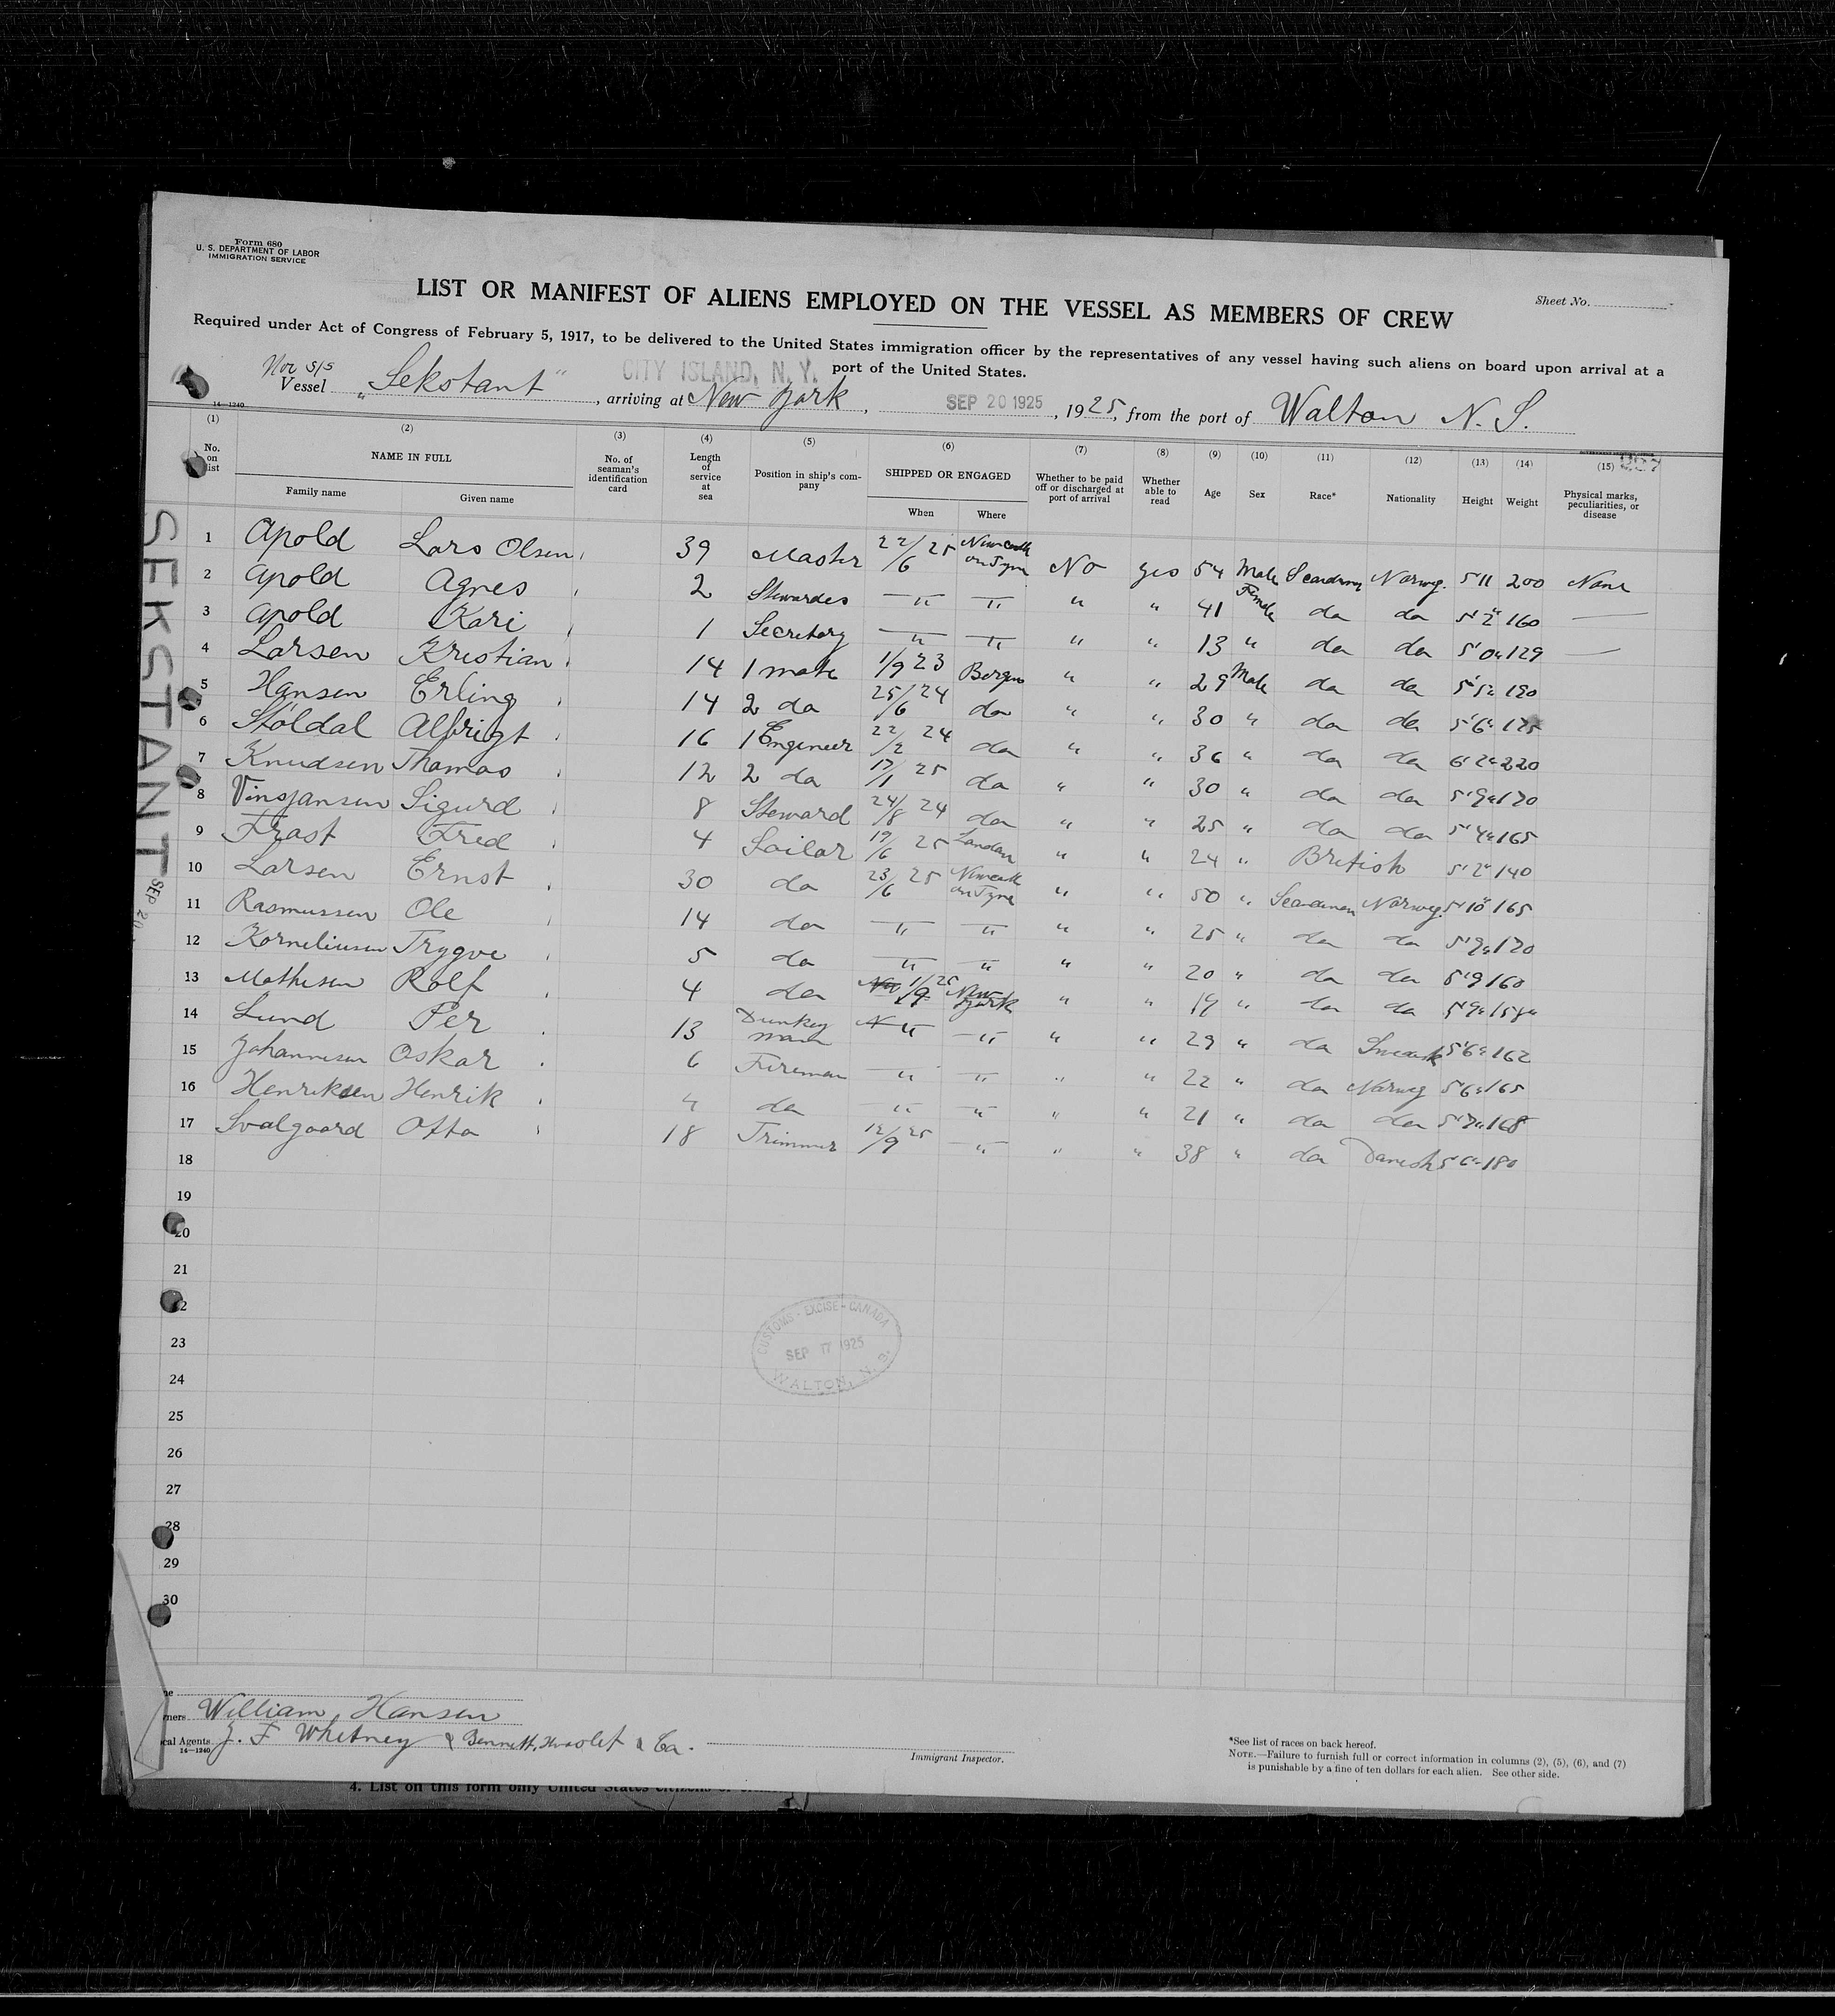 Form 680
U. S. DEPARTMENT OF LABOR
IMMIGRATION SERVICE
Sheet No.
LIST OR MANIFEST OF ALIENS EMPLOYED ON THE VESSEL AS MEMBERS OF CREW
Required under Act of Congress of February 5, 1917, to be delivered to the United States immigration officer by the representatives of any vessel having such aliens on board upon arrival at a
port of the United States.
CITY ISLAND, N. Y.
Nor S/S
Vessel „Sekstant", arriving at New York, SEP 20 1925, 1925, from the port of Walton N. S.
14—1240
(1) (2) (3) (4) (5) (6) (7) (8) (9) (10) (11) (12) (13) (14) (15)
No. on list
NAME IN FULL
Family name Given name
No. of seaman's identification card
Length of service at sea
Position in ship's company
SHIPPED OR ENGAGED
When Where
Whether to be paid off or discharged at port of arrival
Whether able to read
Age Sex Race* Nationality Height Weight
Physical marks, peculiarities, or disease
1 Apold Lars Olsen 39 Master 22/6 25 Newcastle on Tyne No yes 54 Male Scandinav Norweg. 5 11 200 None
2 Apold Agnes 2 Stewardes —"— —"— " " 41 Female do do 5'2" 160 —
3 Apold Kari 1 Secretary —"— —"— " " 13 " do do 5'0" 129 —
4 Larsen Kristian 14 1 mate 1/9 23 Bergen " " 29 Male do do 5'5" 190
5 Hansen Erling 14 2 do 25/6 24 do " " 30 " do do 5'6" 175
6 Støldal Albrigt 16 1 Engineer 22/2 24 do " " 36 " do do 6'2" 220
7 Knudsen Thomas 12 2 do 17/1 25 do " " 30 " do do 5'9" 170
8 Vinsjansen Sigurd 8 Steward 24/8 24 do " " 25 " do do 5'4" 165
9 Frost Fred 4 Sailor 19/6 25 London " " 24 " British 5'2" 140
10 Larsen Ernst 30 do 23/6 25 Newcastle on Tyne " " 50 " Scandinav Norweg. 5'10" 165
11 Rasmussen Ole 14 do —"— —"— " " 25 " do do 5'9" 170
12 Korneliusen Trygve 5 do —"— —"— " " 20 " do do 5'9 160
13 Mathisen Rolf 4 do 1/9 25 New York " " 19 " do do 5'9" 158
14 Lund Per 13 Dunkey man —"— —"— " " 29 " do 5'6" 162
15 Johannesen Oskar 6 Fireman —"— —"— " " 22 " do Norweg 5'6" 165
16 Henriksen Henrik 4 do —"— —"— " " 21 " do do 5'7" 168
17 Svalgaard Otto 18 Trimmer 12/9 25 —"— " " 38 " do Danish 5'6" 180
18
19
20
21
22
23
24
25
26
27
28
29
30
SEKSTANT
SEP 20
CUSTOMS - EXCISE - CANADA
SEP 17 1925
WALTON, N. S.
William Hansen
J. F. Whitney & Bennett, & Co.
cal Agents
14—1240
Immigrant Inspector.
*See list of races on back hereof.
NOTE.—Failure to furnish full or correct information in columns (2), (5), (6), and (7)
is punishable by a fine of ten dollars for each alien. See other side.
4. List on this form only United States citizens